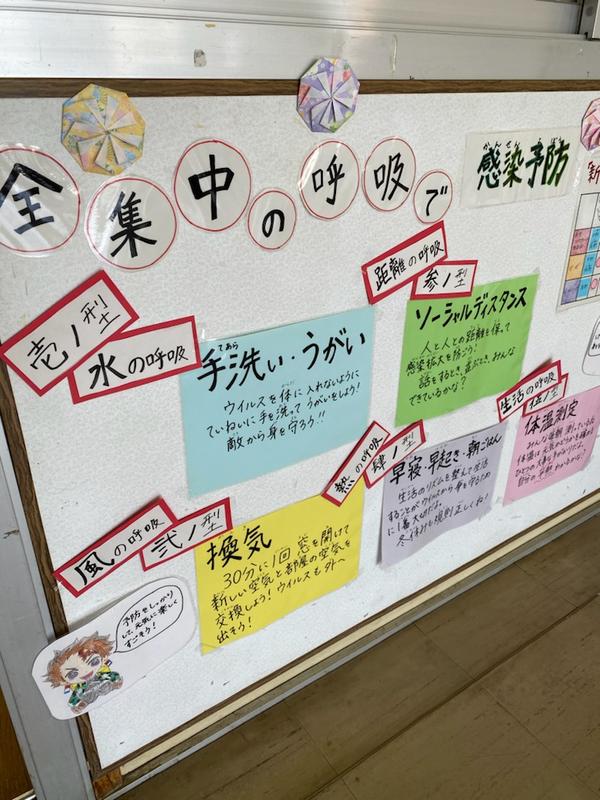 全集中の呼吸で
感染予防
壱ノ型
水の呼吸
手洗い・うがい
ウイルスを体に入れないように
ていねいに手を洗ってうがいをしよう!
敵から身を守ろう!!
風の呼吸
弐ノ型
換気
30分に1回 窓を開けて
新しい空気と部屋の空気を
交換しよう!ウイルスも外へ
出そう!
距離の呼吸
参ノ型
ソーシャルディスタンス
人と人との距離を保って
感染拡大を防ごう!
話をするとき、並ぶとき、みんな
できているかな?
熱の呼吸
肆ノ型
早寝・早起き・朝ごはん
生活のリズムを整えて生活
することがウイルスから身を守るため
に1番大切だよ。
冬休みも規則正しくね!
生活の呼吸
伍ノ型
体温測定
みんな毎朝測っている
体温は元気かどうかを確かめる
ひとつの大事な
自分の平熱わかるかな?
予防をしっかり
して、元気に楽しく
すごそう!
新